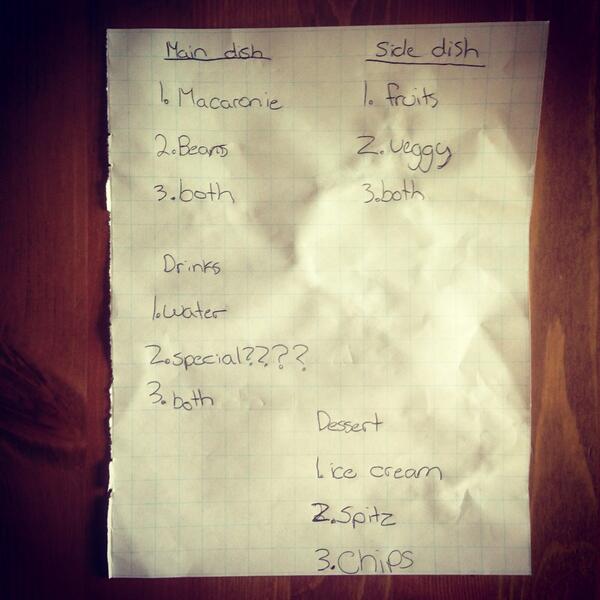 Main dish
1. Macaronie
2. Beans
3. both
Side dish
1. fruits
2. veggy
3. both
Drinks
1. water
2. special????
3. both
Dessert
1. ice cream
2. Spitz
3. Chips